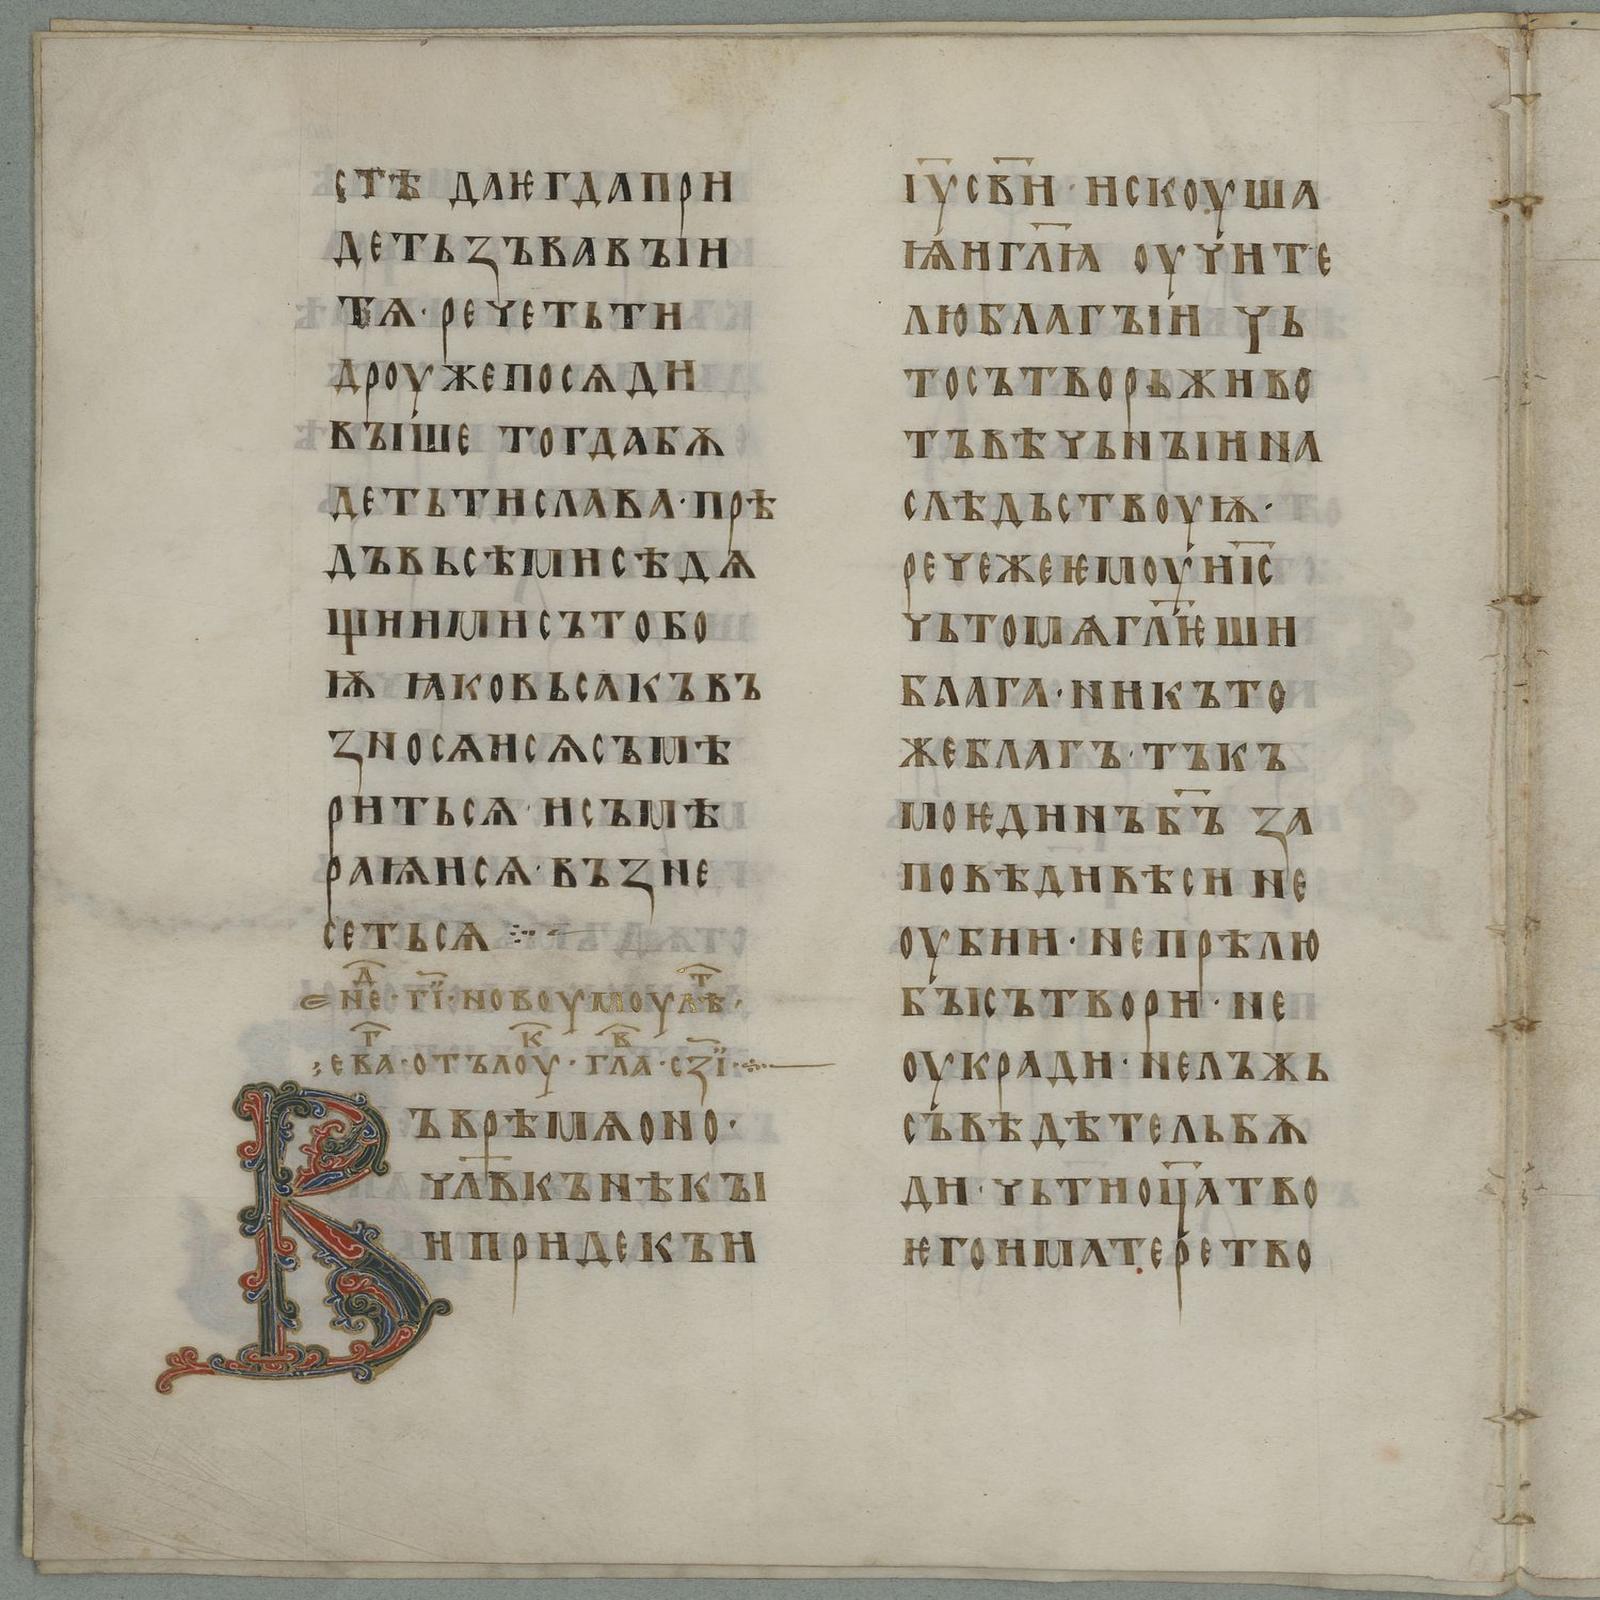 стѣ даѥгдапри
детьзъвавъіи
тѧ· речетьти
дроужепосѧди
въіше тогдабѫ
детьтислава·прѣ
дъвьсѣмисѣдѧ
щиимисътобо
ѭ ꙗковьсакъвъ
зносѧисѧсъмѣ
ритьсѧ·исъмѣ
раѩисѧ·възне
сетьсѧ
не҇д·г҃і·новоумоулѣ҇т·
ев҇а·отълоу҇к·гл҇а·сз҃і·
Въврѣмѧоно·
чл҃вкънѣкъі
иприидекъи
і҃усв҃и·искоуша
ѩиигл҃ꙗ оучите
люблагъіи чь
тосътворьживо
тъвѣчьнъіина
слѣдьствоуѭ·
речежеѥмоуі҃с
чьтомѧгл҃ѥши
блага·никъто
жеблагъ·тъкъ
моѥдинъб҃ъ за
повѣдивѣси не
оубии·непрѣлю
бъісътвори·не
оукради·нелъжь
съвѣдѣтельбѫ
ди·чьтиоц҃атво
ѥгоиматеретво